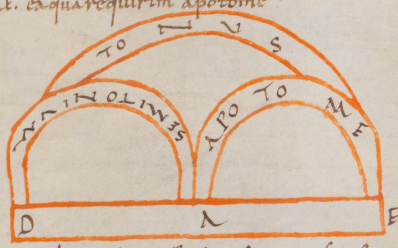 ea qua requirim apotome
TONVS
SEMITONIVM
APOTOME
D A E